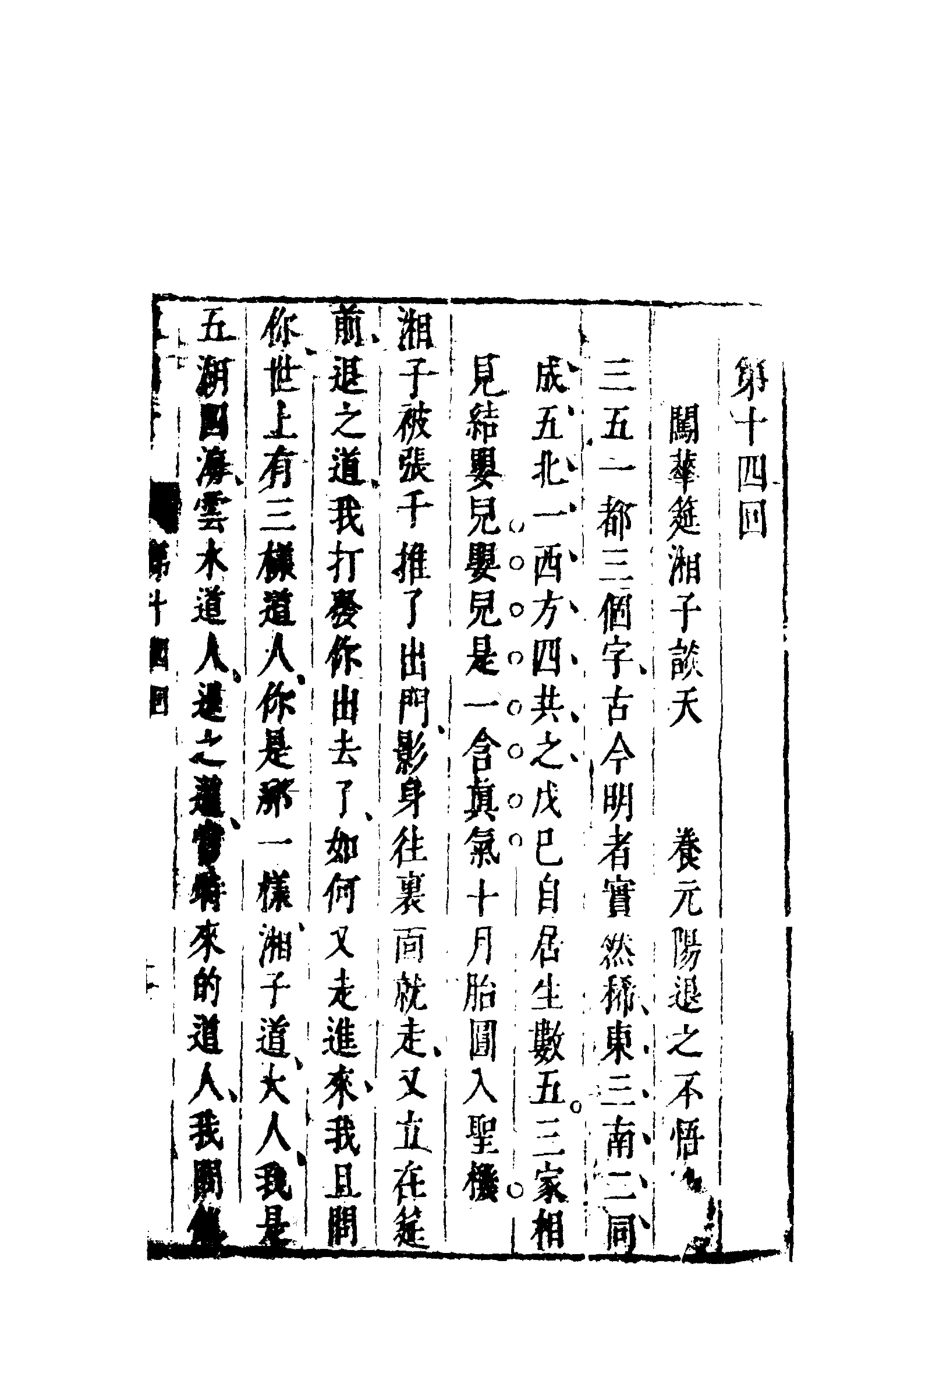 第十四回
闖華筵湘子談天　養元陽退之不悟
三五一都三個字古今明者實然稀東三南二同
成五北一西方四共之戊己自居生數五三家相
見結嬰兒嬰兒是一含真氣十月胎圓入聖機
湘子被張千推了出門影身往裏面就走又立在筵
前退之道我打發你出去了如何又走進來我且問
你世上有三樣道人你是那一樣湘子道大人我是
五湖四海雲水道人退之道當特來的道人我問你
第十四回